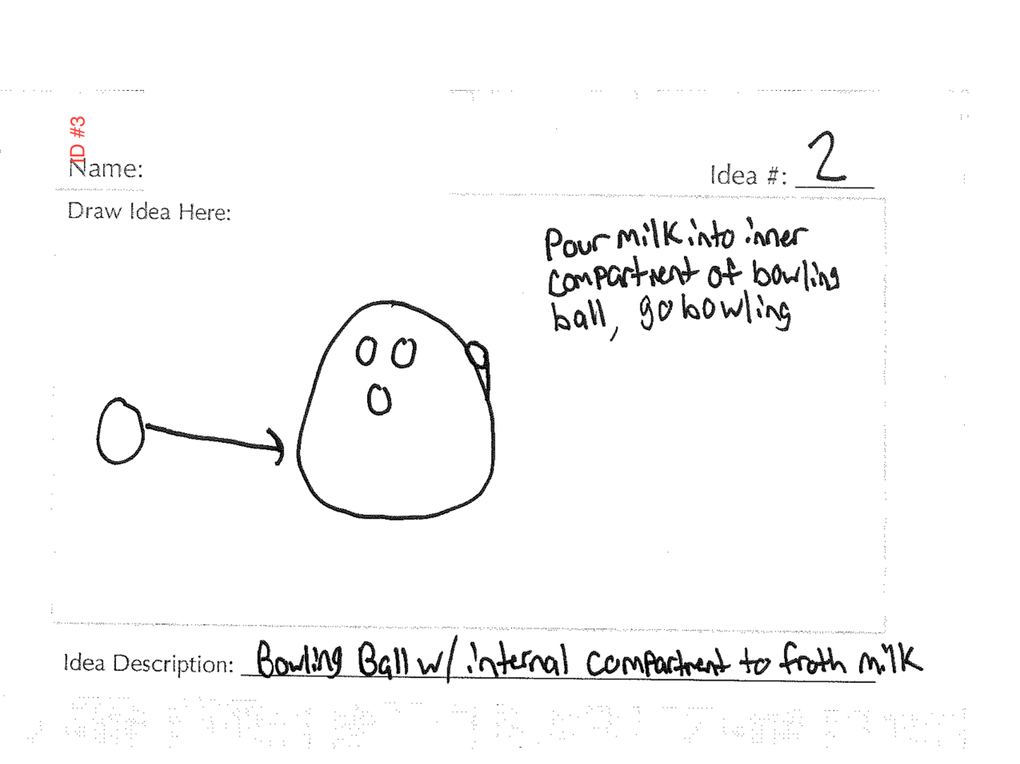 ID #3
Name:
Idea #: 2
Draw Idea Here:
Pour milk into inner
compartment of bowling
ball, go bowling
Idea Description: Bowling Ball w/ internal compartment to froth milk